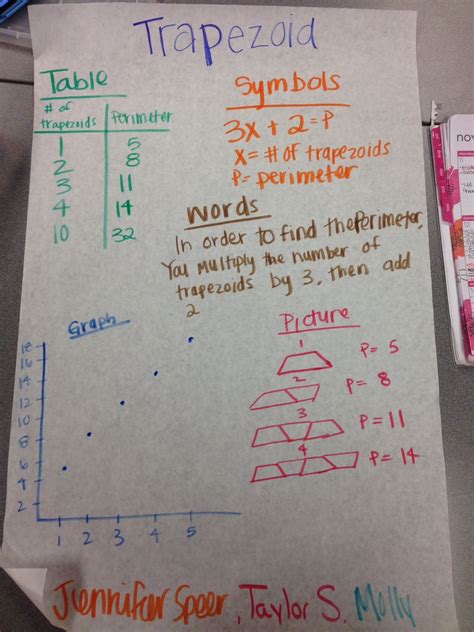 Trapezoid
Table
# of trapezoids Perimeter
1 5
2 8
3 11
4 14
10 32
Symbols
3x + 2 = P
x = # of trapezoids
P = perimeter
Words
In order to find the Perimeter,
You multiply the number of
trapezoids by 3, then add
2
Graph
18
16
14
12
10
8
6
4
2
1 2 3 4 5
Picture
1
P = 5
2
P = 8
3
P = 11
4
P = 14
Jennifer Speer, Taylor S. Molly
nov